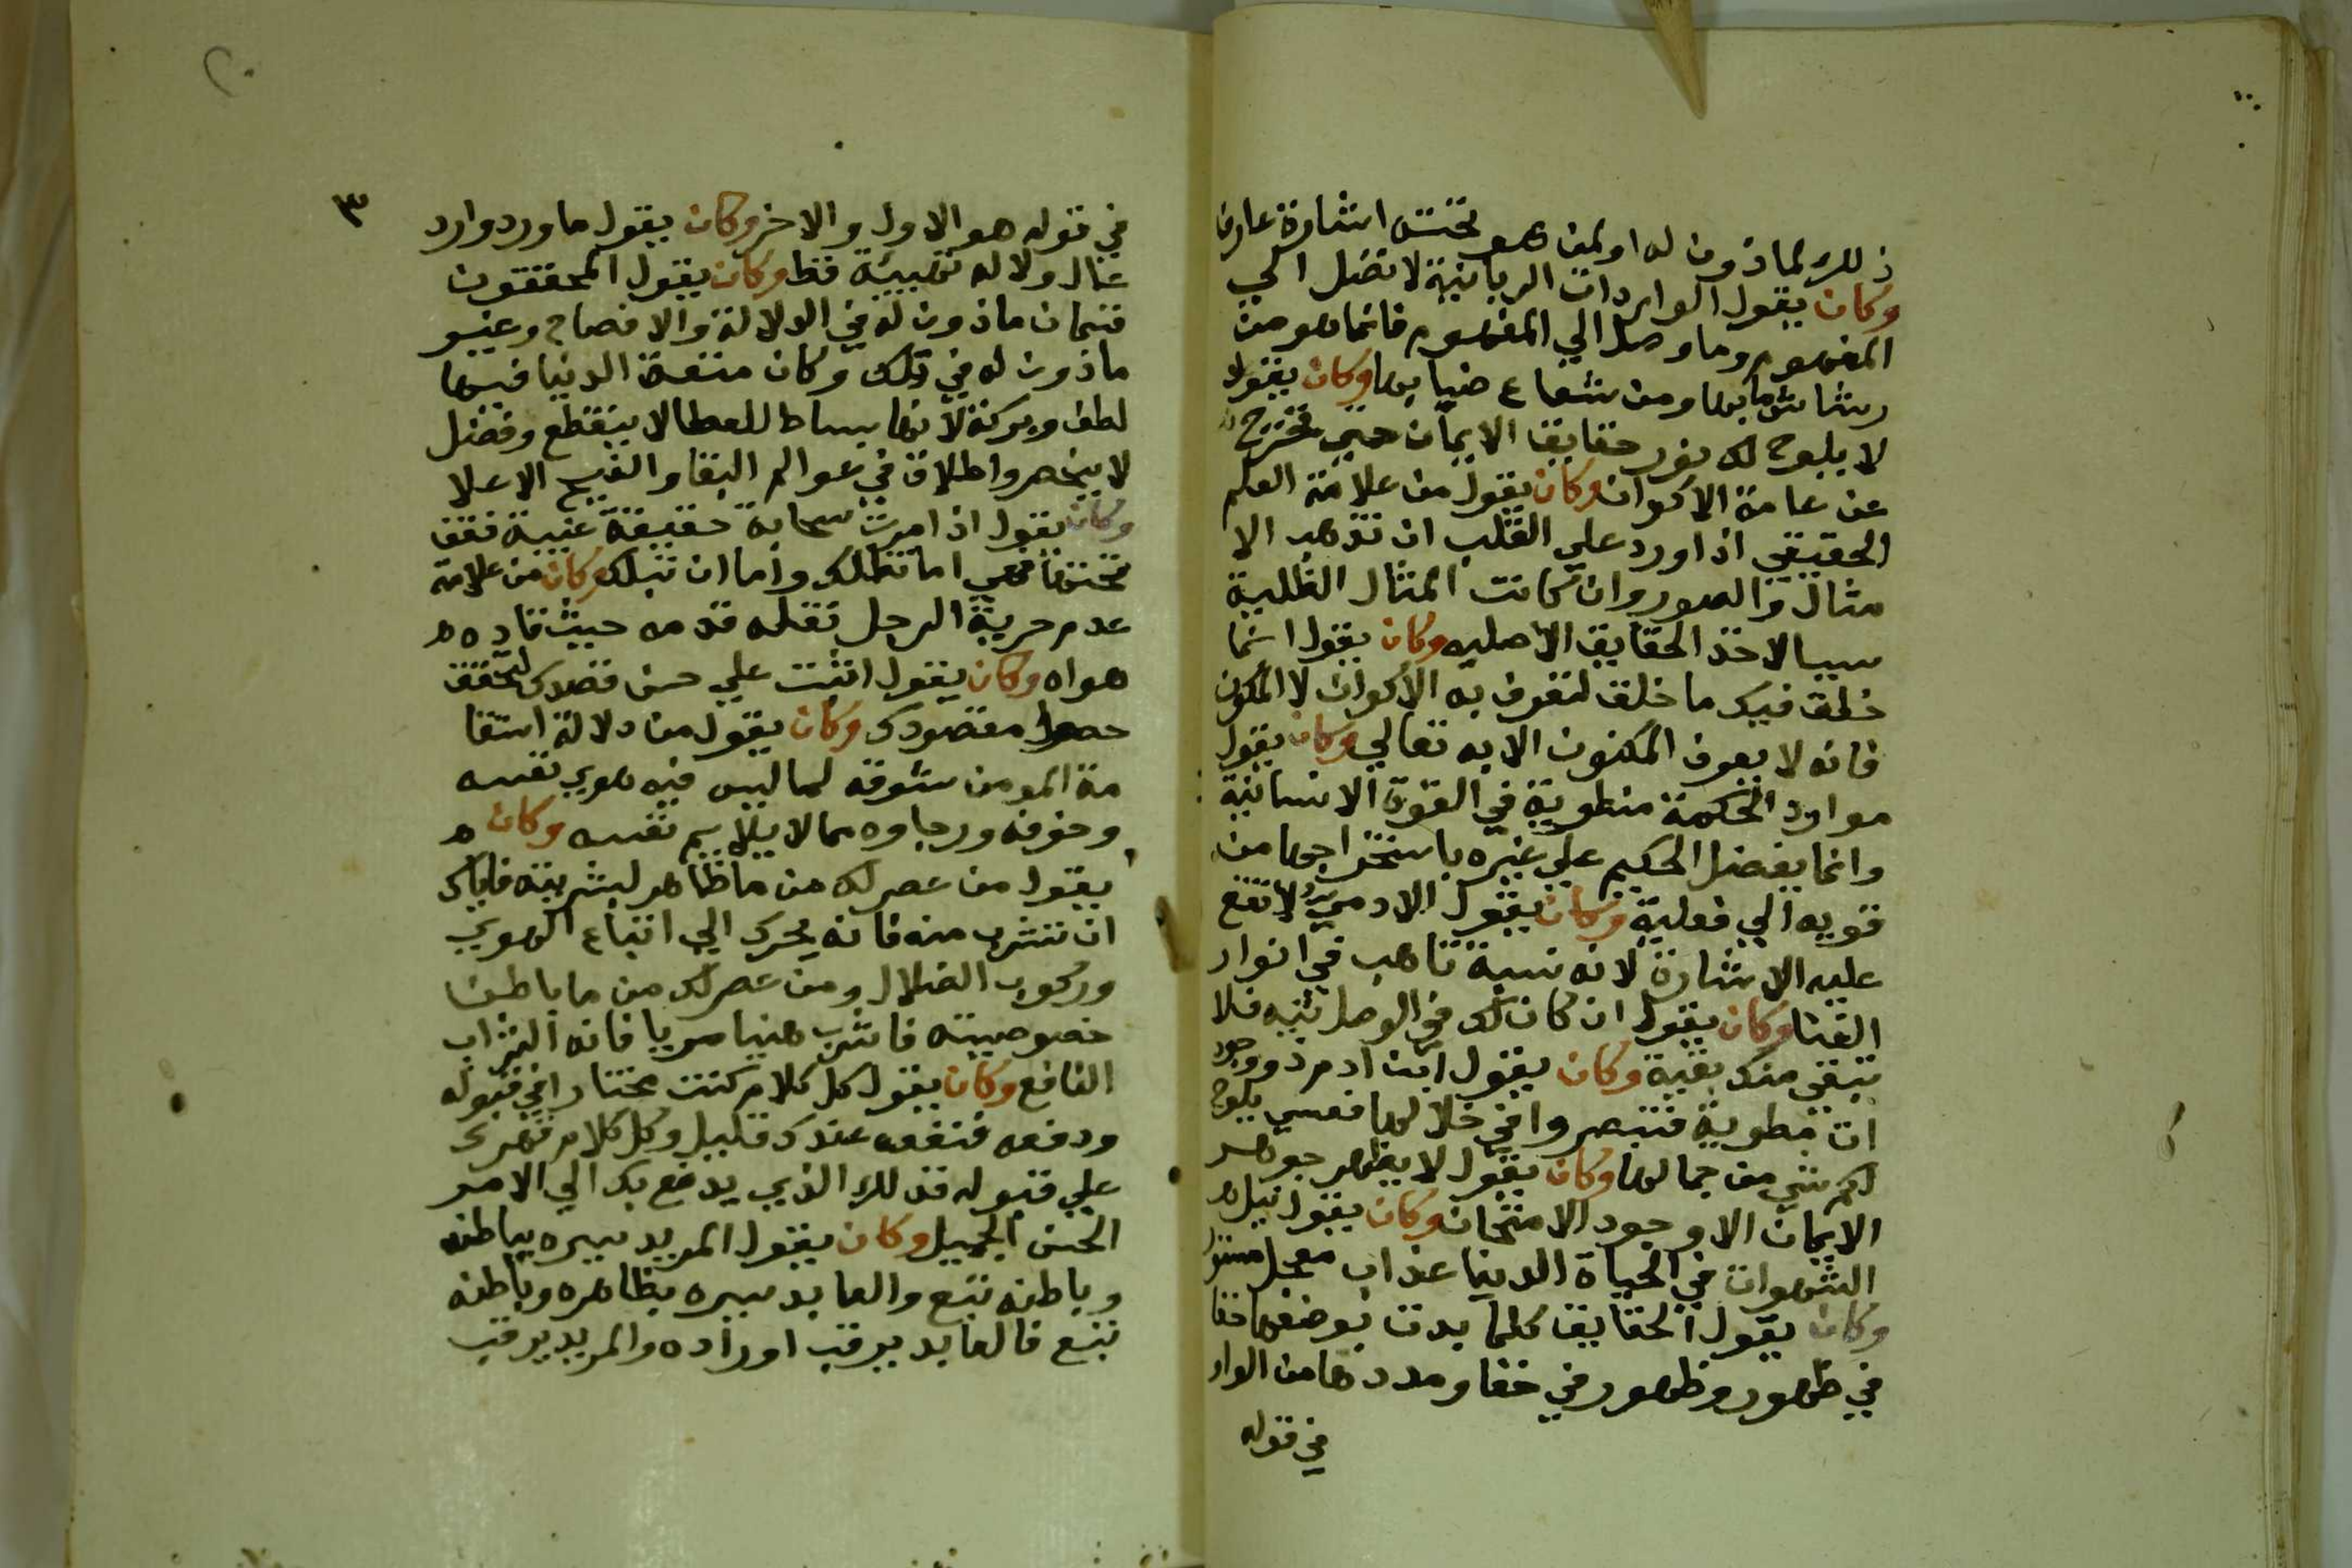 ذلك لماذون له او لمن هو تحتس اشارة عارف
وكان يقول الواردات الربانية لا تصل الي
المفهوم وما وصل الي المفهوم فانما هو من
رشاش مايها ومن شعاع ضيايها وكان يقول
لا يلوح لك نور حقايق الايمان حتي تخرج
عن عامة الاكوان وكان يقول من علامة العلم
الحقيقي اذا ورد علي القلب ان تذهب الا
مثال والصور وان كانت المثال القلبية
سببا لاخذ الحقايق الاصليه وكان يقول انما
خلق فيك ما خلق لتعرف به الاكوان لا المكون
فانه لا يعرف المكون الا به تعالي وكان يقول
موارد الحكمة منطوية في القوة الانسانية
وانما يفضل الحكيم علي غيره باستخراجها من
قويه الي فعلية وكان يقول الادمي لا تقع
عليه الاشارة لانه نسبة تاهب في انوار
الفنا وكان يقول ان كان لك في الوصل نيه فلا
تبقي منك بقية وكان يقول ابن ادم ذو وجود
ات مطوية فتبصروا في خلالها فعسي يلوح
لكم شي من جمالها وكان يقول لا يظهر جوهر
الايمان الا وجود الامتحان وكان يقول نيل
الشهوات في الحياة الدنيا عذاب معجل
وكان يقول الحقايق كلما بدت بوصفها خفا
في ظهور وظهور في خفا ومددها من الوار
في قوله
٣
في قوله هو الاول والاخر وكان يقول ما ورد وارد
عال ولا له فقط وكان يقول المحققون
قسمان ماذون له في الدلالة والافصاح وغير
ماذون له في ذلك وكان متعة الدنيا فيها
لطف وبركة لانها بساط للعطا لا ينقطع وفضل
لا ينحصر واطلاق في عوالم البقا والغيب الاعلا
وكان يقول اذا مرت سحابة حقيقة غيبية فقف
تحتها فهي اما تظلك واما ان تبلك وكان من علامة
عدم حرية الرجل تقله قدمه حيث قاده
هواه وكان يقول اثبت علي حسن قصدك لتحقق
حصول مقصودك وكان يقول من دلالة استقا
مة المومن شوقه لما ليس فيه هوي نفسه
وخوفه ورجاوه مما لا يلايم نفسه وكان
يقول من عصر لك من ما ظاهر بشريته فاياك
ان تشرب منه فانه يحرك الي اتباع الهوي
وركوب الضلال ومن عصر لك من ما باطن
خصوصيته فاشرب هنيا مريا فانه الشراب
النافع وكان يقول كل كلام كنت مختارا في قبوله
ودفعه فنفعه عندك قليل وكل كلام قهرك
علي قبوله فذلك الذي يدفع بك الي الامر
الحسن الجميل وكان يقول المريد سيره بباطنه
وباطنه تبع والعابد سيره بظاهره وباطنه
تبع فالعابد يرقب اوراده والمريد يرقب